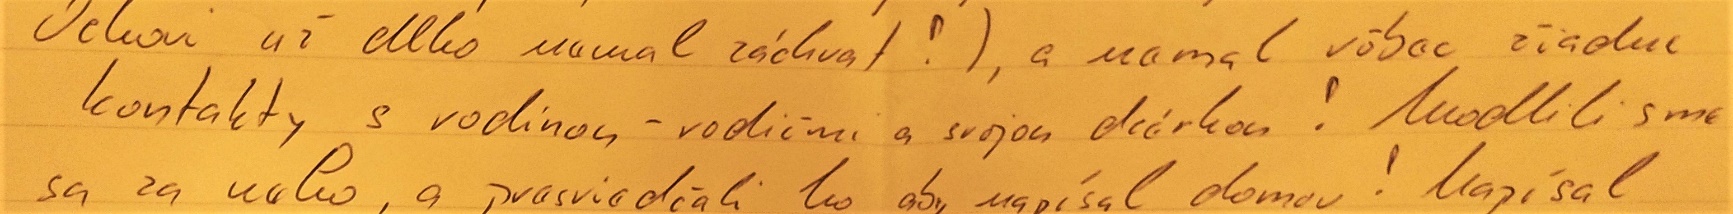 už dlho nemal záchvat!), a nemal vôbec žiadne
kontakty s rodinou - rodičmi a svojou dcérkou! Modlili sme
sa za neho, a presviedčali ho aby napísal domov! Napísal